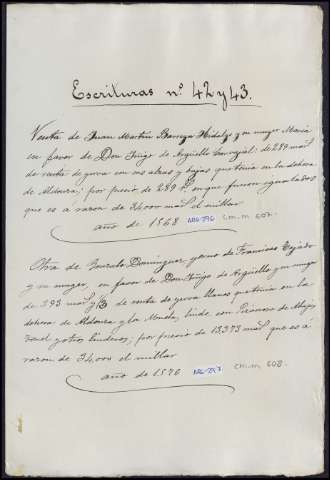 Escrituras nº 42 y 43.
Venta de Juan Martin Hidalgo y su muger Maria
en favor de Don Iñigo de Argüello Carvajal: de 289 mas.l
de renta de yerva en sus altas y bajas que tenia en la dehesa
de Aldaura; por precio de 289 en que fueron igualados
que es á razon de 34.000 mas.l el millar
año de 1568 NAG-296 CM.M 607.
Otra de Gonzalo Dominguez, yerno de Francisco Tejado
y su muger, en favor de Don Iñigo de Argüello y su muger
de 393 mas.l y 1/3 de renta de yerva llanos que tenia en la
dehesa de Aldaura y la Mata, linde, con
y otros linderos; por precio de 13373 mas.l que es á
razon de 34,000 el millar
año de 1576 NAG-297 CM.M 608.